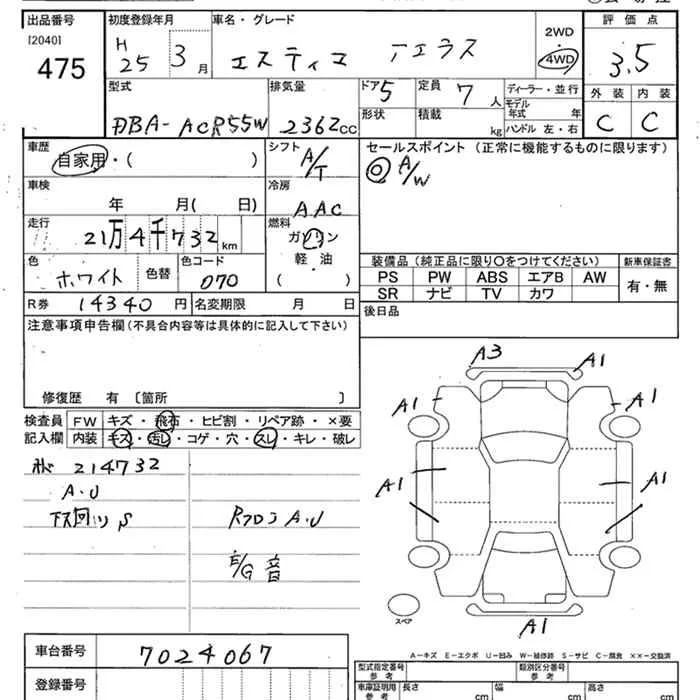 出品番号
[2040]
475
初度登録年月
H 25 3 月
車名・グレード
エスティマ アエラス
2WD
4WD
評価点
3.5
外装 内装
C C
型式
DBA-ACR55W
排気量
2362cc
ドア 5
形状
定員 7 人
積載 kg
ディーラー・並行
モデル年式 年
ハンドル 左・右
車歴
自家用・( )
シフト A/T
セールスポイント (正常に機能するものに限ります)
◎A/W
車検
年 月( 日)
冷房
AAC
走行
21万4千732km
燃料
ガソリン
軽・油
( )
色
ホワイト
色替
色コード
070
R券 14340 円
名変期限 月 日
装備品 (純正品に限り○をつけてください)
PS PW ABS エアB AW
SR ナビ TV カワ
新車保証書
有・無
後日品
注意事項申告欄 (不具合内容等は具体的に記入して下さい)
修復歴 有 〔箇所 〕
検査員記入欄
FW キズ・飛石・ヒビ割・リペア跡・×要
内装 キズ・汚レ・コゲ・穴・スレ・キレ・破レ
214732
A・U
下回り S
Rフロア A・U
E/G 音
A3
A1
A1
A1
A1
A1
A1
スペア
A-キズ E-エクボ U-凹み W-補修跡 S-サビ C-腐食 ××-交換済
車台番号
7024067
登録番号
型式指定番号
参考
類別区分番号
参考
車庫証明用
参考
長さ cm
幅 cm
高さ cm